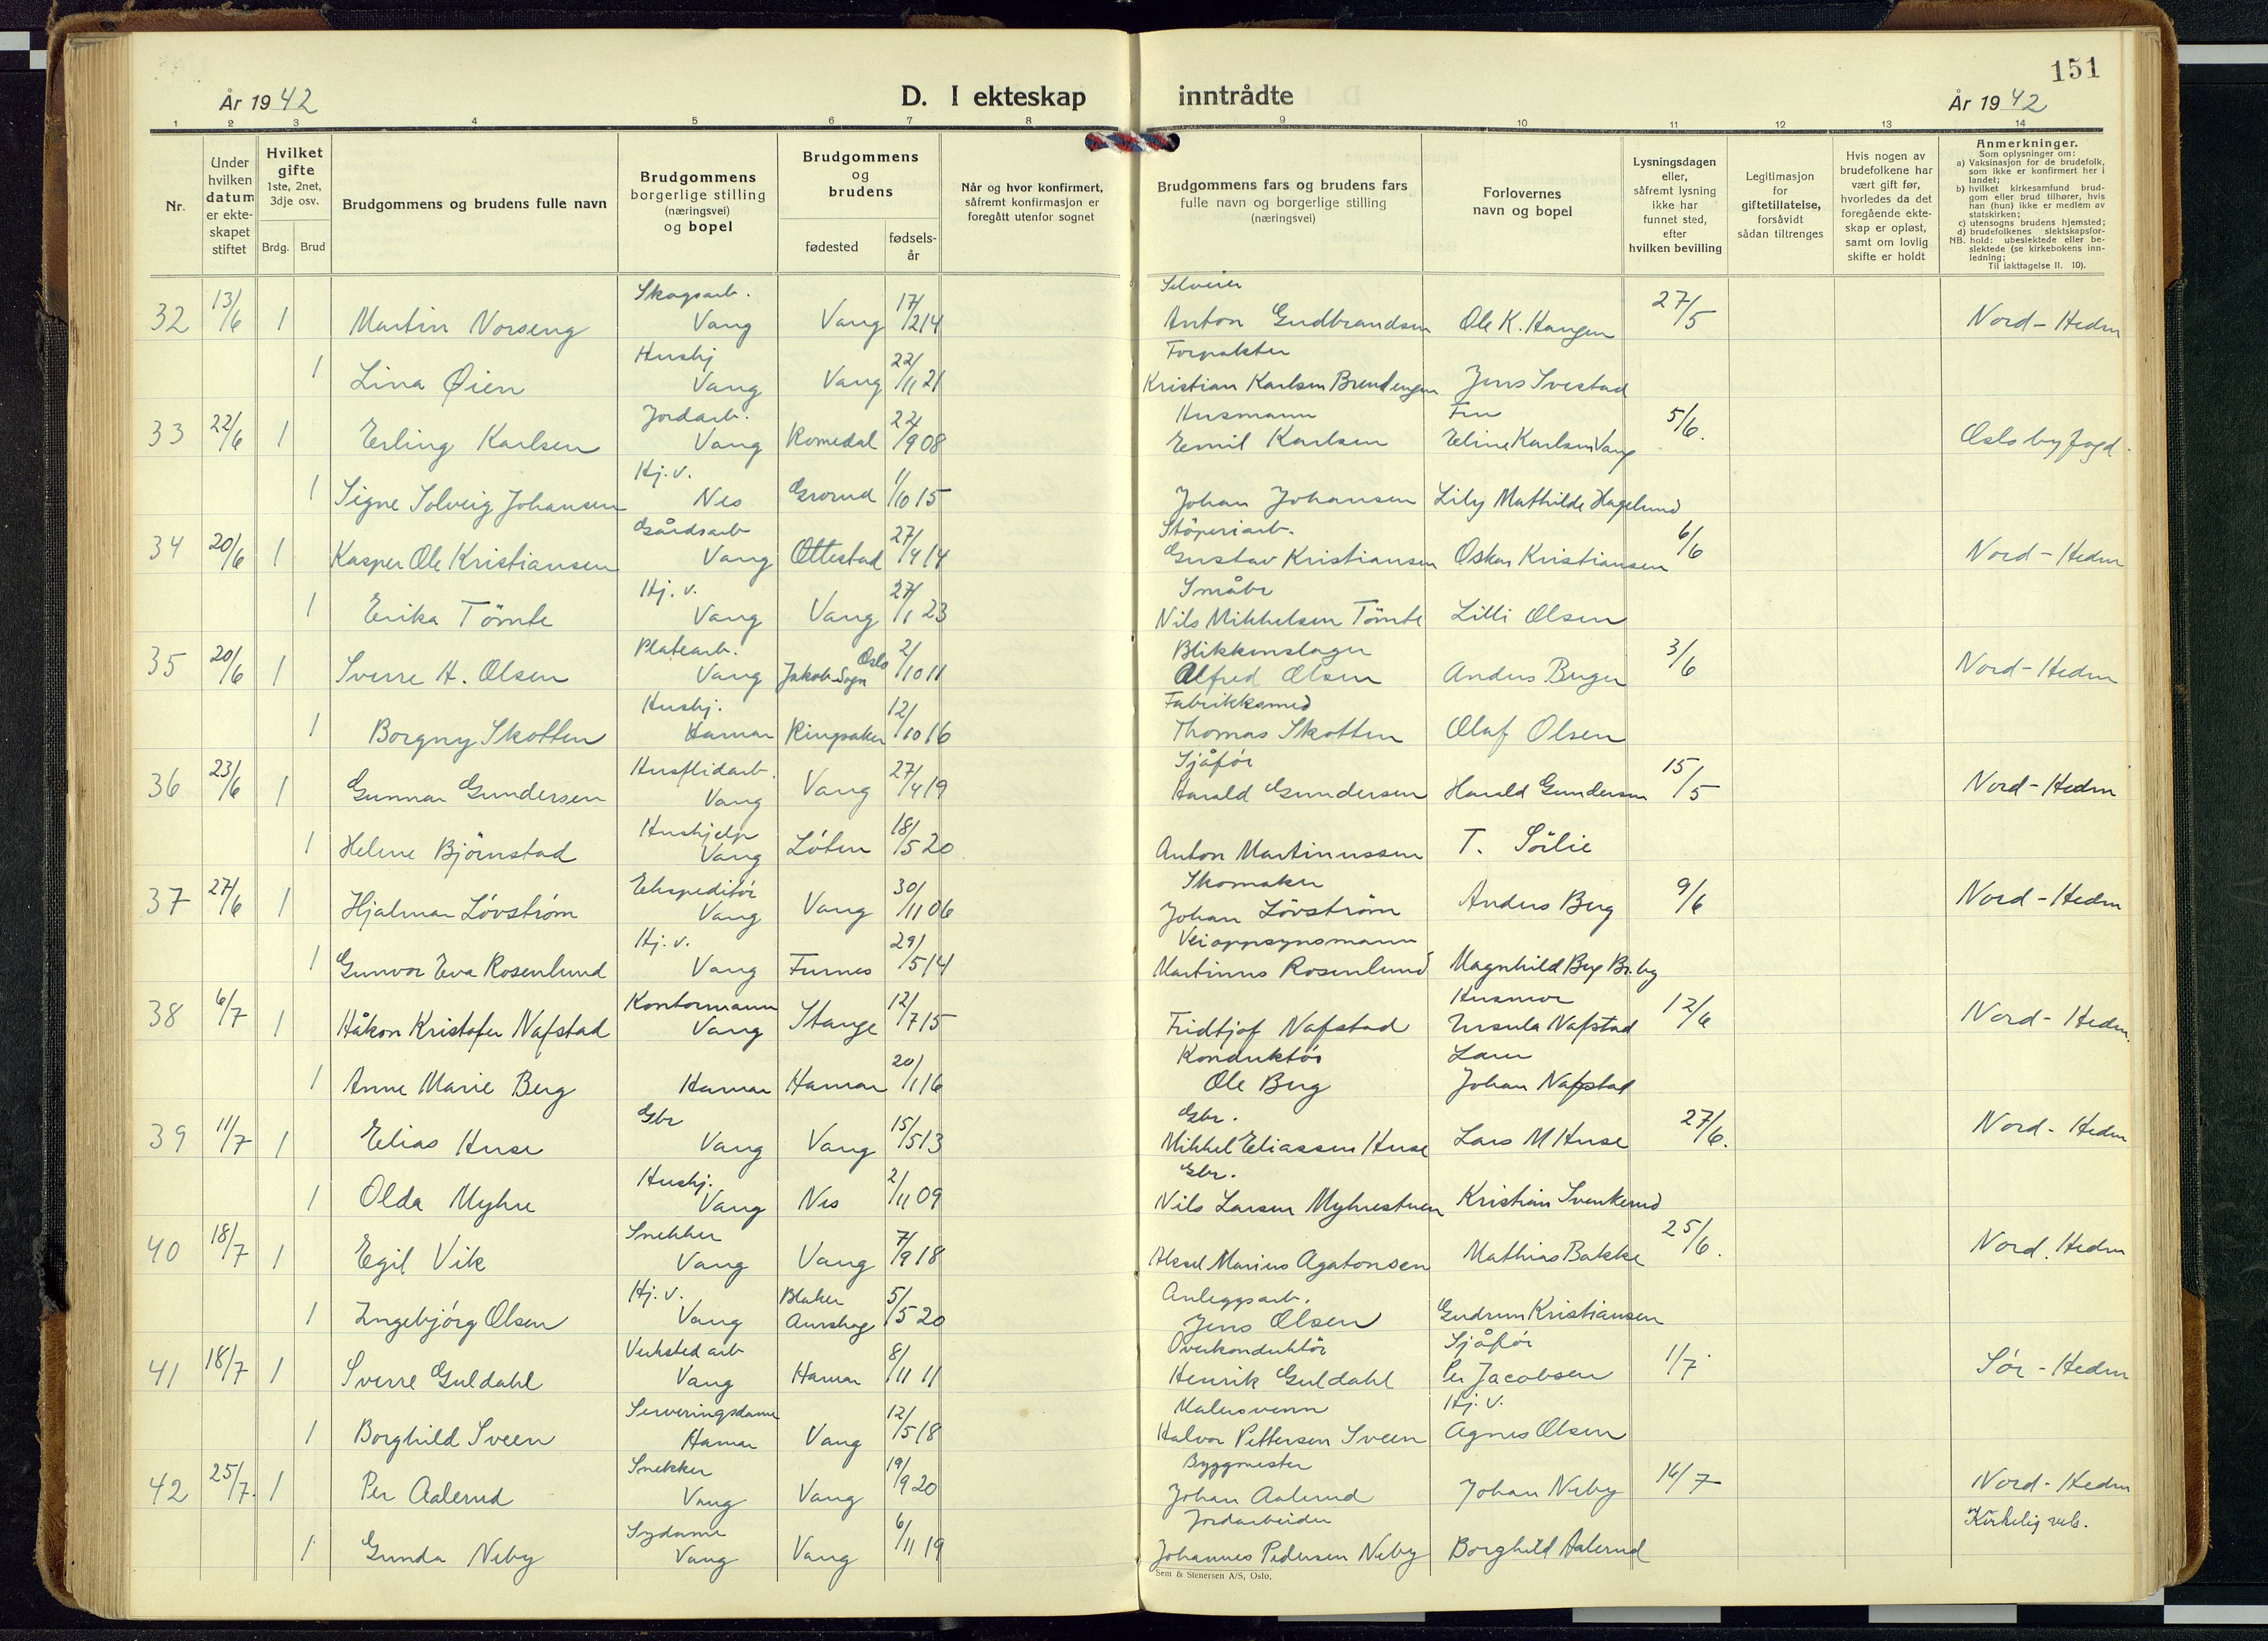 151
År 1942
D. I ekteskap
inntrådte
År 1942
1 2 3 4 5 6 7 8 9 10 11 12 13 14
Nr.
Under
hvilken
datum
er ekte-
skapet
stiftet
Hvilket
gifte
1ste, 2net,
3dje osv.
Brdg. Brud
Brudgommens og brudens fulle navn
Brudgommens
borgerlige stilling
(næringsvei)
og bopel
Brudgommens
og
brudens
fødested
fødsels-
år
Når og hvor konfirmert,
såfremt konfirmasjon er
foregått utenfor sognet
Brudgommens fars og brudens fars
fulle navn og borgerlige stilling
(næringsvei)
Forlovernes
navn og bopel
Lysningsdagen
eller,
såfremt lysning
ikke har
funnet sted,
efter
hvilken bevilling
Legitimasjon
for
giftetillatelse,
forsåvidt
sådan tiltrenges
Hvis nogen av
brudefolkene har
vært gift før,
hvorledes da det
foregående ekte-
skap er opløst,
samt om lovlig
skifte er holdt
Anmerkninger.
Som oplysninger om:
a) Vaksinasjon for de brudefolk,
som ikke er konfirmert her i
landet;
b) hvilket kirkesamfund brud-
gom eller brud tilhører, hvis
han (hun) ikke er medlem av
statskirken;
c) utensogns brudens hjemsted;
d) brudefolkenes slektskapsfor-
NB. hold: ubeslektede eller be-
slektede (se kirkebokens inn-
ledning;
Til iakttagelse II. 10).
Skogsarb. Selveier
32 13/6 1 Martin Norseng Vang Vang 17/2 14 Anton Gudbrandsen Ole K. Haugen 27/5 Nord-Hedm
Hushj Forpakter
1 Lina Øien Vang Vang 22/11 21 Kristian Karlsen Brendengen Jens Svestad
Jordarb. Husmann Fru
33 22/6 1 Erling Karlsen Vang Romedal 22/9 08 Emil Karlsen Eline Karlsen Vang 5/6. Oslo byfogd.
Hj.v.
1 Signe Solveig Johansen Nes Grorud 1/10 15 Johan Johansen Lily Mathilde Hagelund
Gårdsarb Støperiarb.
34 20/6 1 Kasper Ole Kristiansen Vang Ottestad 27/4 14 Gustav Kristiansen Oskar Kristiansen 6/6 Nord-Hedm
Hj.v. Småbr
1 Erika Tömte Vang Vang 27/1 23 Nils Mikkelsen Tömte Lilli Olsen
Platearb. Oslo Blikkenslager
35 20/6 1 Sverre H. Olsen Vang Jakob Sogn 2/10 11 Alfred Olsen Anders Berger 3/6 Nord-Hedm
Hushj. Fabrikksmed
1 Borgny Skotten Hamar Ringsaker 12/10 16 Thomas Skotten Olaf Olsen
Husflidarb. Sjåfør
36 23/6 1 Gunnar Gundersen Vang Vang 27/4 19 Harald Gundersen Harald Gundersen 15/5 Nord-Hedm
Hushjelp
1 Helene Bjørnstad Vang Løten 18/5 20 Anton Martinussen T. Sörlie
Ekspeditør Skomaker
37 27/6 1 Hjalmar Løvstrøm Vang Vang 30/11 06 Johan Lövström Anders Berg 9/6 Nord-Hedm
Hj.v. Veioppsynsmann
1 Gunvor Eva Rosenlund Vang Furnes 29/5 14 Martinus Rosenlund Magnhild Berg
Kontormann Husmor
38 6/7 1 Håkon Kristofer Nafstad Vang Stange 12/7 15 Fridtjof Nafstad Ursula Nafstad 12/6 Nord-Hedm.
Konduktør
1 Anne Marie Berg Hamar Hamar 20/1 16 Ole Berg Johan Nafstad
Gbr Gbr.
39 11/7 1 Elias Huse Vang Vang 15/5 13 Mikkel Eliassen Huse Lars M Huse 27/6. Nord-Hedm
Hushj. Gbr.
1 Olda Myhre Vang Nes 2/11 09 Nils Larsen Myhrestuen Kristian Svenkerud
Snekker
40 18/7 1 Egil Vik Vang Vang 7/9 18 Aksel Marius Agatonsen Mathias Bakke 25/6. Nord. Hedm
Hj.v. Blaker Anleggsarb.
1 Ingebjørg Olsen Vang Aurskog 5/5 20 Jens Olsen Gudrun Kristiansen
Verksted arb Overkonduktör Sjåfør
41 18/7 1 Sverre Guldahl Vang Hamar 8/11 11 Henrik Guldahl Per Jacobsen 1/7 Sør-Hedm
Serveringsdame Malersvenn Hj.v.
1 Borghild Sveen Hamar Vang 12/5 18 Halvor Pettersen Sveen Agnes Olsen
Snekker Byggmester
42 25/7. 1 Per Aalerud Vang Vang 19/9 20 Johan Aalerud Johan Neby 14/7 Nord-Hedm
Sydame Jordarbeider Kirkelig vels.
1 Gunda Neby Vang Vang 6/11 19 Johannes Pedersen Neby Borghild Aalerud
Sem & Stenersen A/S, Oslo.